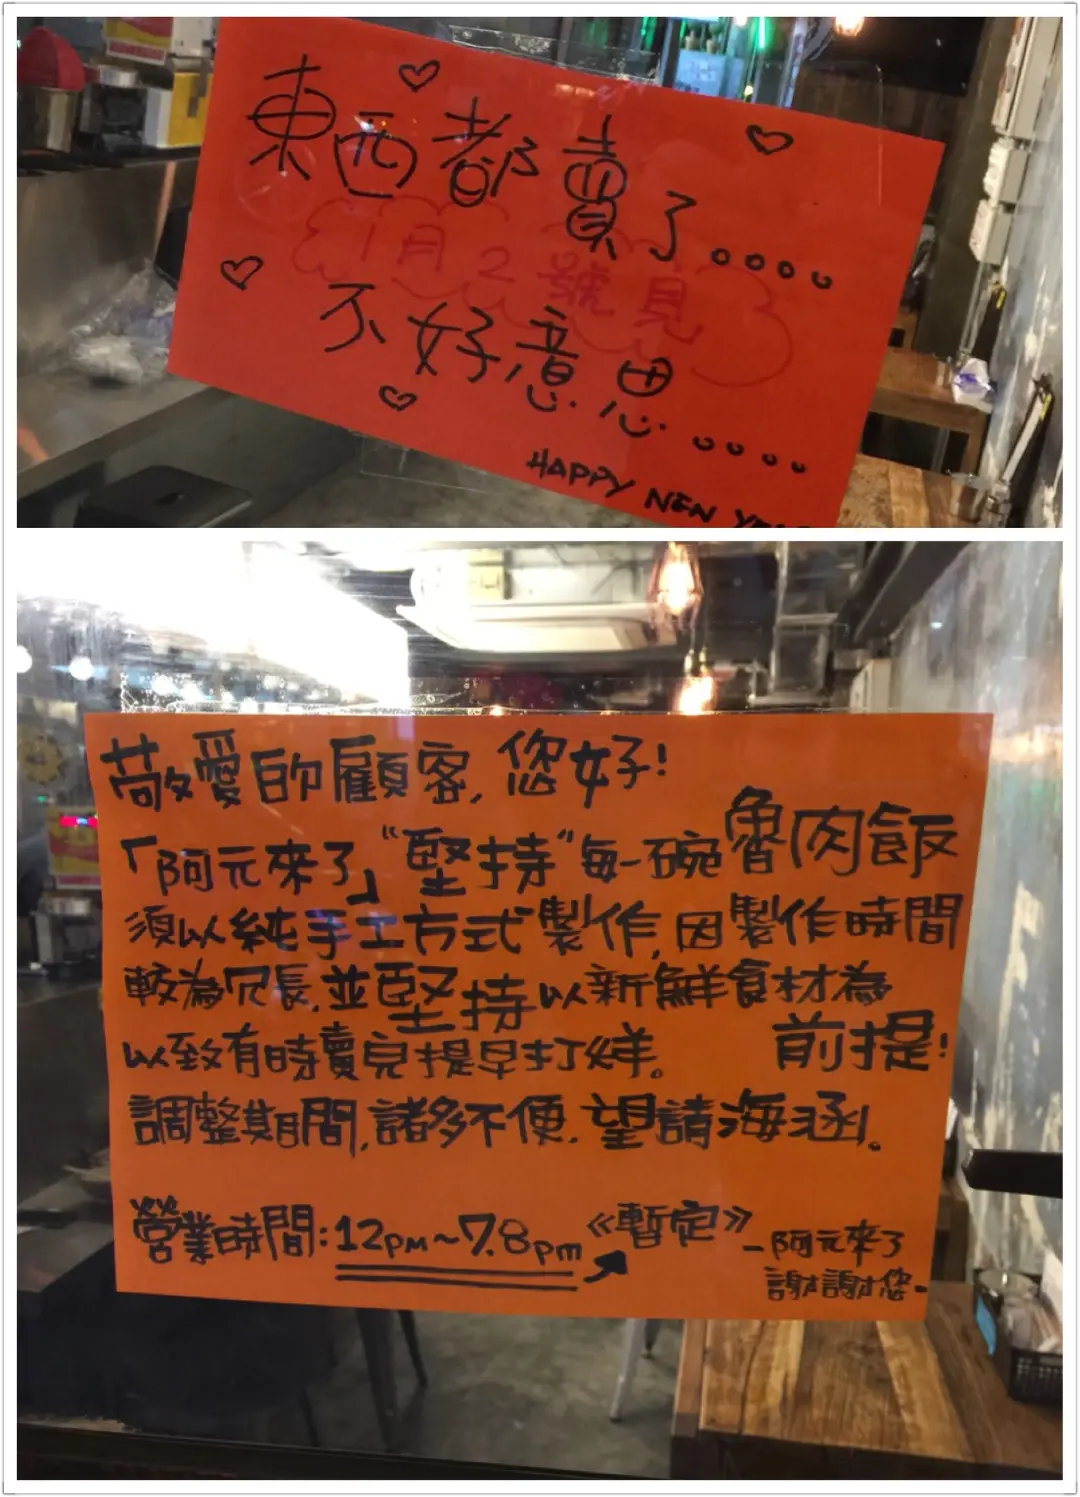 東西都賣了。。。。
1月2號見
不好意思。。。。
HAPPY NEW
敬愛的顧客，您好！
「阿元來了」“堅持”每一碗魯肉飯
須以純手工方式製作，因製作時間
較為冗長，並堅持以新鮮食材為
前提！
以致有時賣完提早打烊。
調整期間，諸多不便，望請海涵。
營業時間：12PM~7.8pm《暫定》
-阿元來了
謝謝您-